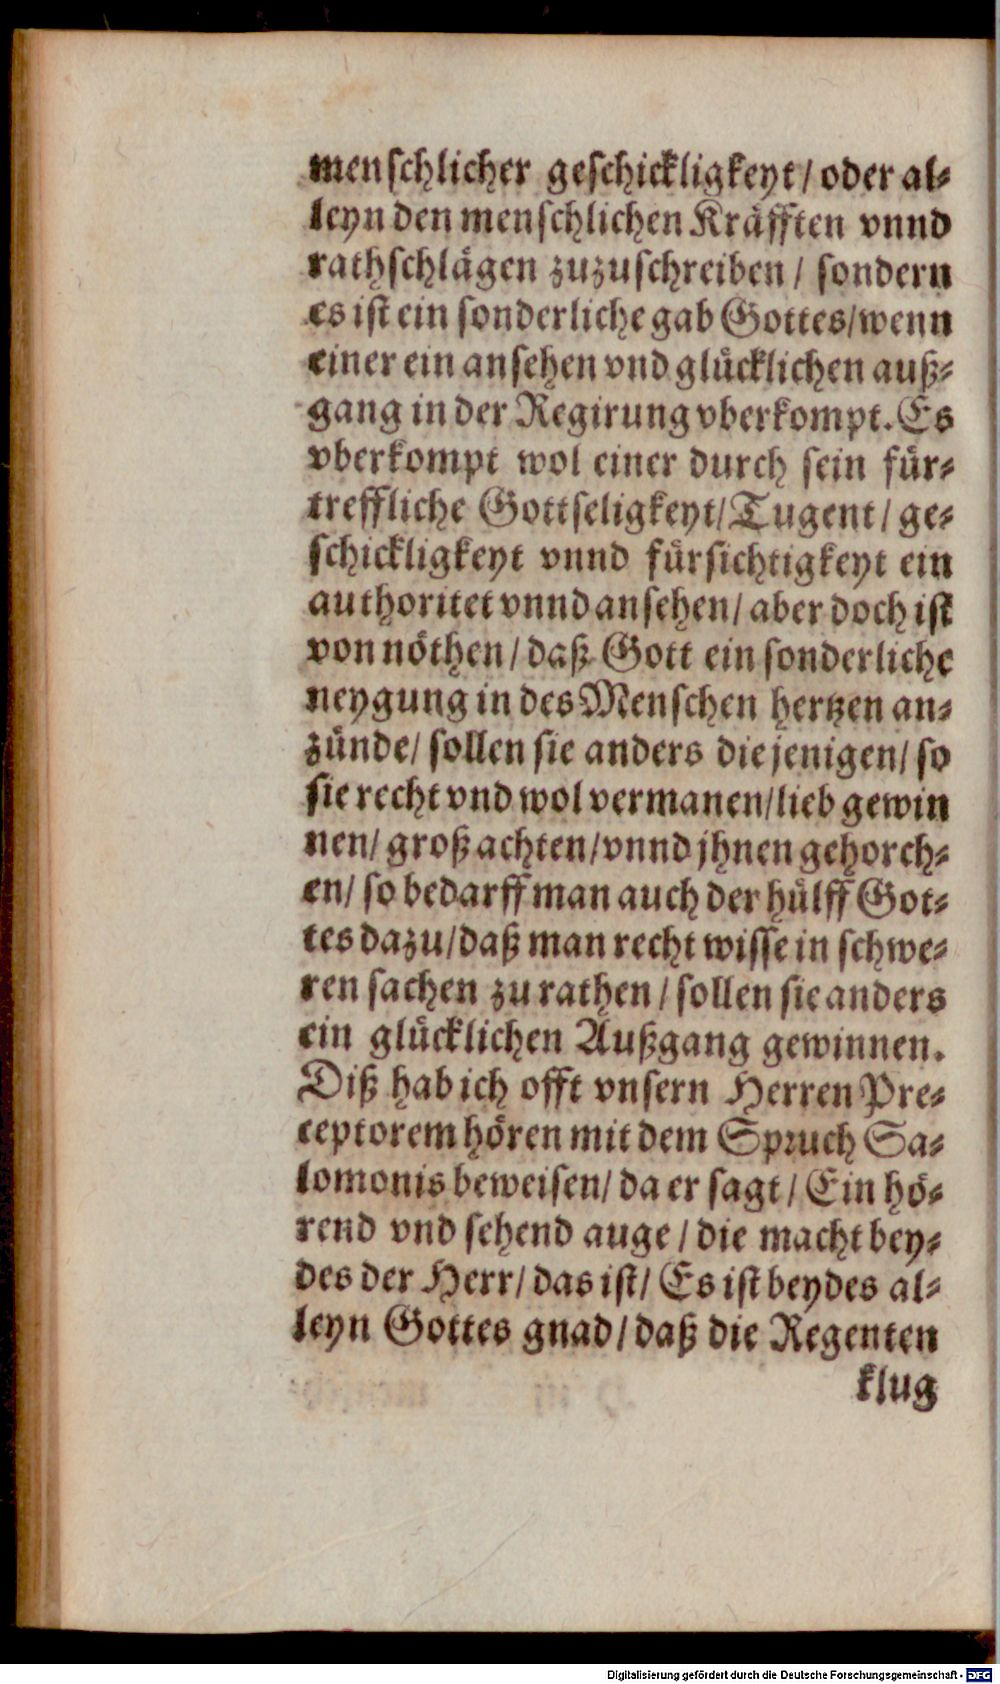 menschlicher geschickligkeyt/ oder al⸗
leyn den menschlichen Kräfften vnnd
rathschlägen zuzuschreiben/ sondern
es ist ein sonderliche gab Gottes/wenn
einer ein ansehen vnd glücklichen auß⸗
gang in der Regirung vberkompt. Es
vberkompt wol einer durch sein für⸗
treffliche Gottseligkeyt/Tugent/ ge⸗
schickligkeyt vnnd fürsichtigkeyt ein
authoritet vnnd ansehen/ aber doch ist
von nöthen/ daß Gott ein sonderliche
neygung in des Menschen hertzen an⸗
zünde/ sollen sie anders die jenigen/ so
sie recht vnd wol vermanen/lieb gewin
nen/ groß achten/vnnd jhnen gehorch⸗
en/ so bedarff man auch der hülff Got⸗
tes dazu/daß man recht wisse in schwe⸗
ren sachen zu rathen/ sollen sie anders
ein glücklichen Außgang gewinnen.
Diß hab ich offt vnsern Herren Pre⸗
ceptorem hören mit dem Spruch Sa⸗
lomonis beweisen/ da er sagt/ Ein hö⸗
rend vnd sehend auge/ die macht bey⸗
des der Herr/ das ist/ Es ist beydes al⸗
leyn Gottes gnad/ daß die Regenten
klug
Digitalisierung gefördert durch die Deutsche Forschungsgemeinschaft - DFG